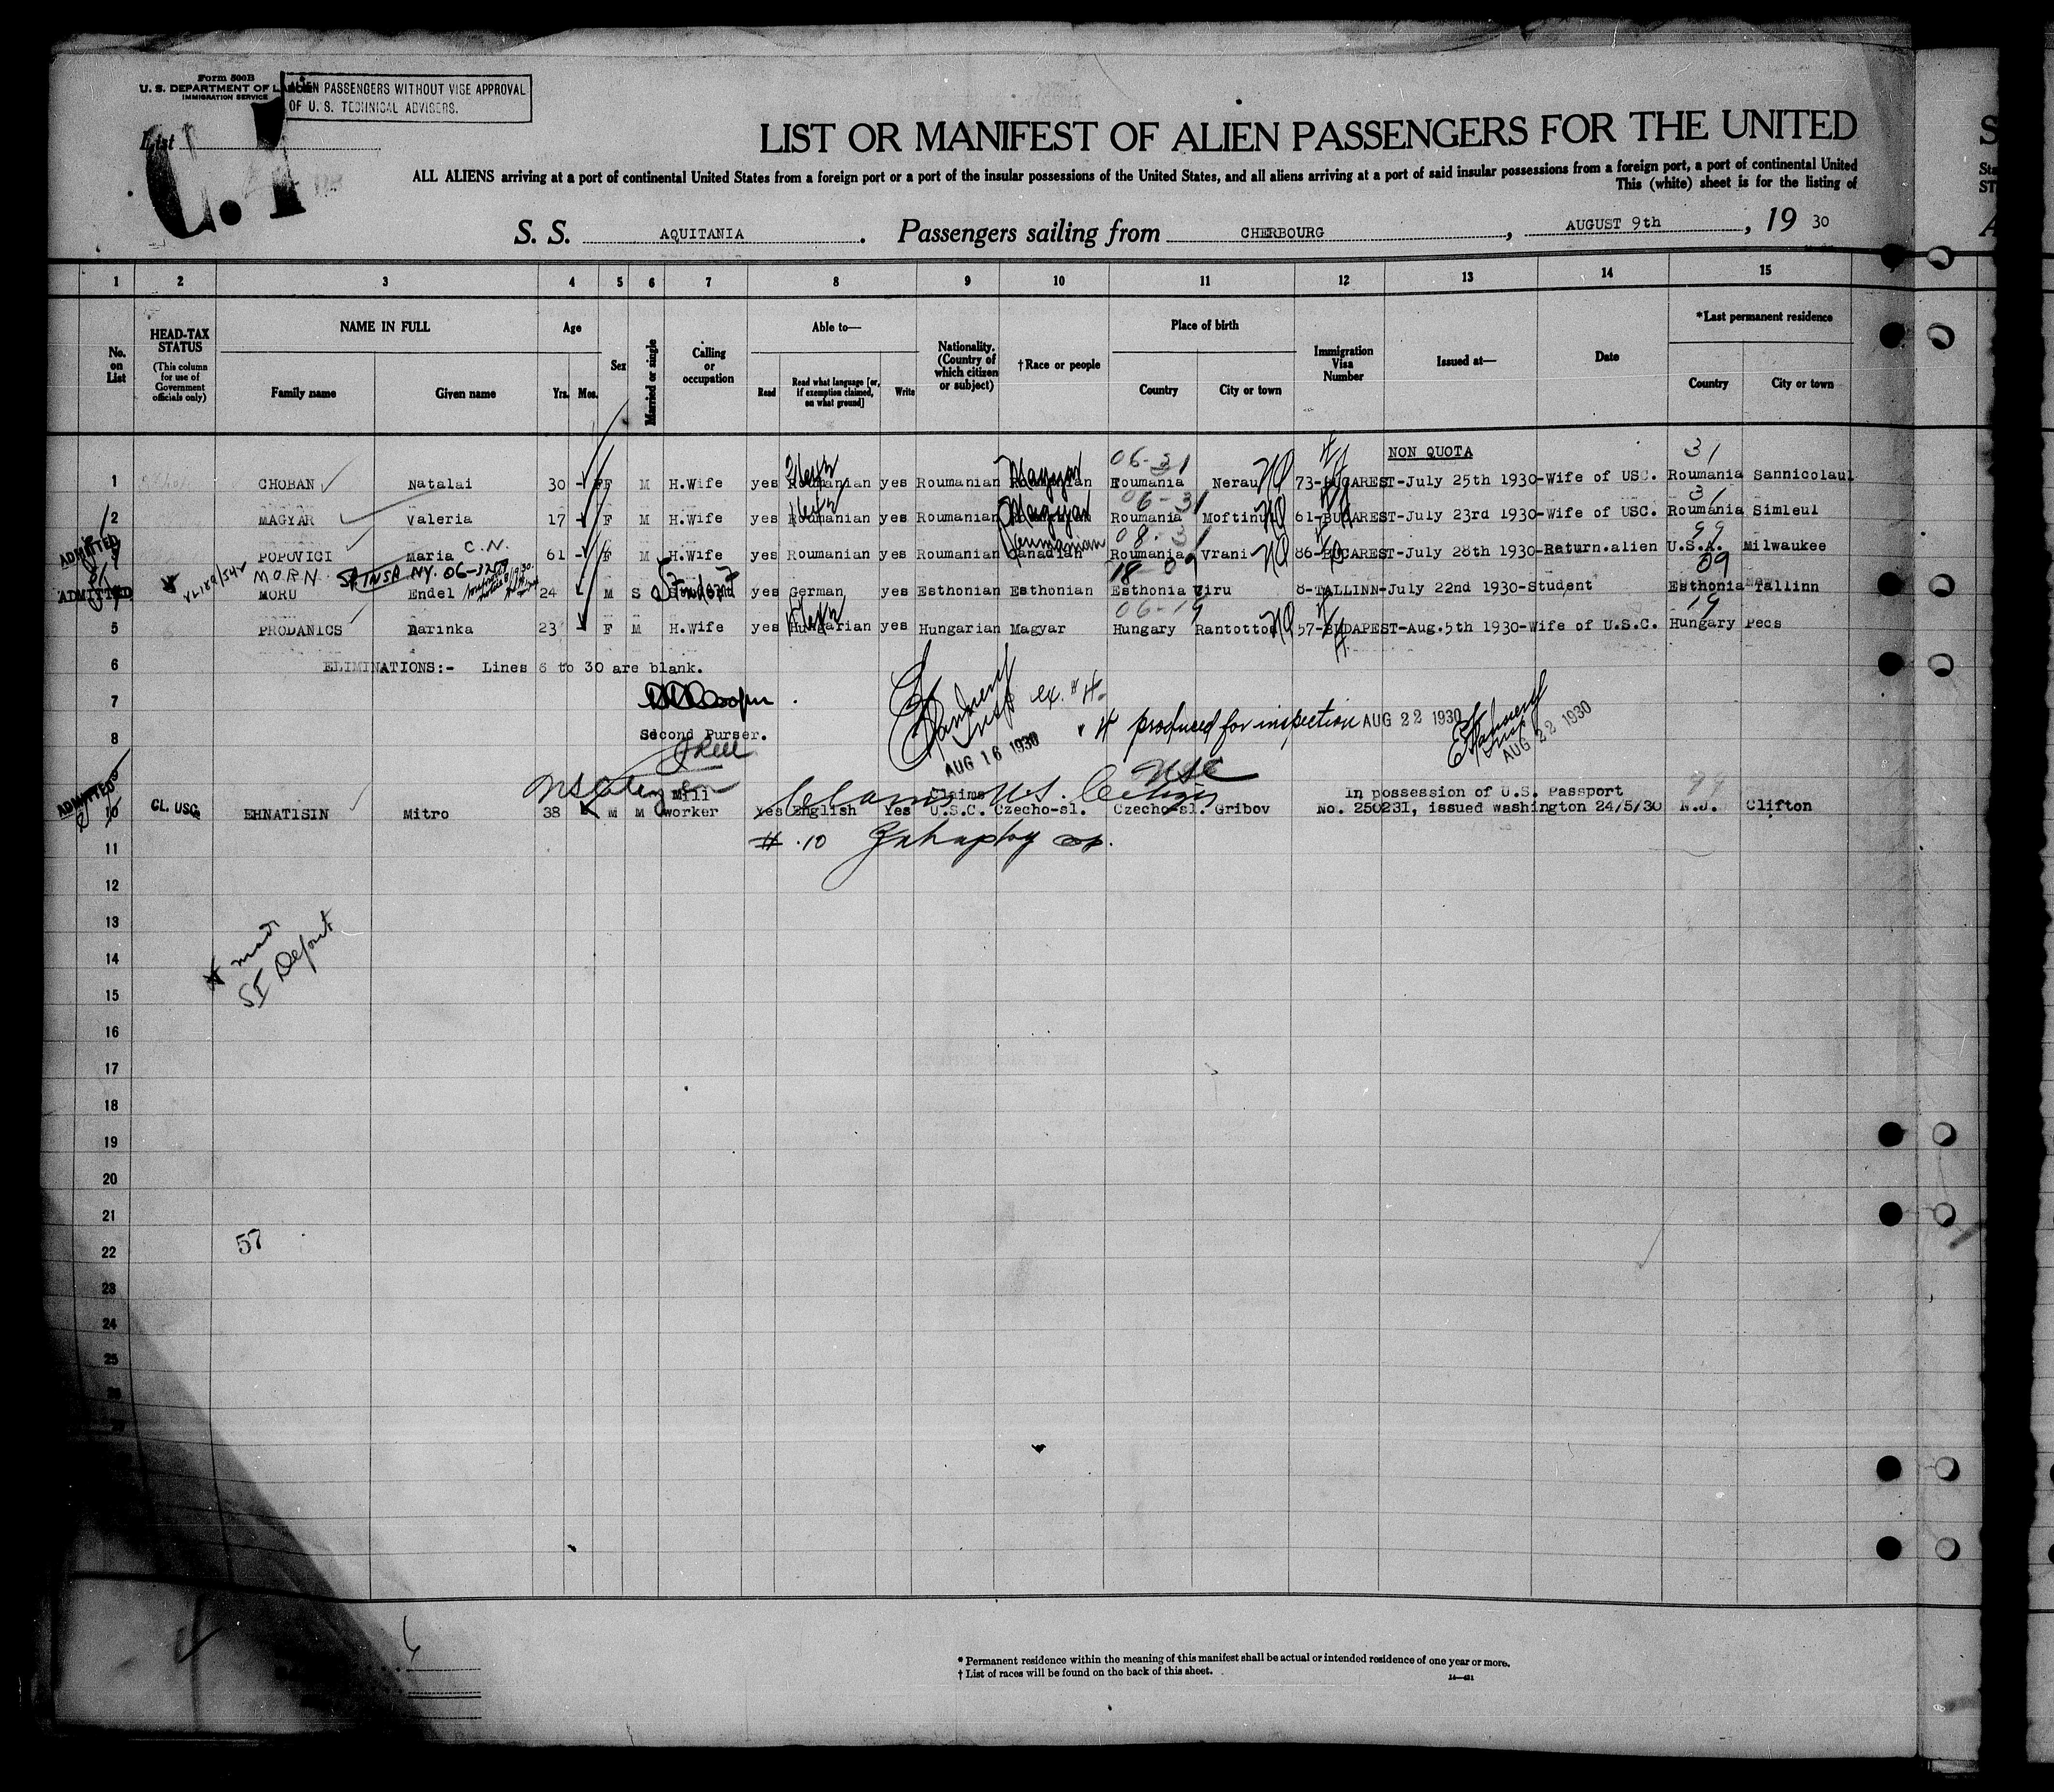 Form 500B
U. S. DEPARTMENT OF LABOR
IMMIGRATION SERVICE
ALIEN PASSENGERS WITHOUT VISE APPROVAL
OF U. S. TECHNICAL ADVISERS.
List
C.1
LIST OR MANIFEST OF ALIEN PASSENGERS FOR THE UNITED
ALL ALIENS arriving at a port of continental United States from a foreign port or a port of the insular possessions of the United States, and all aliens arriving at a port of said insular possessions from a foreign port, a port of continental United
This (white) sheet is for the listing of
S. S. AQUITANIA. Passengers sailing from CHERBOURG, AUGUST 9th, 19 30
1 2 3 4 5 6 7 8 9 10 11 12 13 14 15
No. on List
HEAD-TAX STATUS (This column for use of Government officials only)
NAME IN FULL
Family name Given name
Age
Yrs. Mos.
Sex
Married or single
Calling or occupation
Able to—
Read Read what language [or, if exemption claimed, on what ground] Write
Nationality. (Country of which citizen or subject)
†Race or people
Place of birth
Country City or town
Immigration Visa Number
Issued at—
Date
*Last permanent residence
Country City or town
NON QUOTA
06-31 31
1 CHOBAN Natalai 30 - F M H.Wife yes Roumanian yes Roumanian Magyar Roumania Nerau NQ 73-BUCAREST-July 25th 1930-Wife of USC. Roumania Sannicolaul
06-31 31
2 MAGYAR Valeria 17 - F M H.Wife yes Roumanian yes Roumanian Magyar Roumania Moftinu NQ 61-BUCAREST-July 23rd 1930-Wife of USC. Roumania Simleul
ADMITTED C.N. Roumanian 08-31 99
POPOVICI Maria 61 - F M H.Wife yes Roumanian yes Roumanian Canadian Roumania Vrani NQ 86-BUCAREST-July 28th 1930-Return.alien U.S.A. Milwaukee
MORN 18-09 09
ADMITTED MORU Endel 24 M S Student yes German yes Esthonian Esthonian Esthonia Viru 8-TALLINN-July 22nd 1930-Student Esthonia Tallinn
06-19 19
5 PRODANICS Marinka 23 F M H.Wife yes Hungarian yes Hungarian Magyar Hungary Rantotto NQ 57-BUDAPEST-Aug.5th 1930-Wife of U.S.C. Hungary Pecs
6 ELIMINATIONS:- Lines 6 to 30 are blank.
ex. #4.
7
#4 produced for inspection AUG 22 1930
8 Second Purser.
AUG 16 1930
AUG 22 1930
9
Claims U.S. Citizen USC 99
ADMITTED
Mill Claims In possession of U.S. Passport
10 CL. USC. EHNATISIN Mitro 38 M M worker Yes English Yes U.S.C. Czecho-sl. Czecho-sl. Gribov No. 250231, issued Washington 24/5/30 N.J. Clifton
11 #.10
12
13
made
14 SI Deport
15
16
17
18
19
20
21
22 57
23
24
25
26
* Permanent residence within the meaning of this manifest shall be actual or intended residence of one year or more.
† List of races will be found on the back of this sheet.
14—421